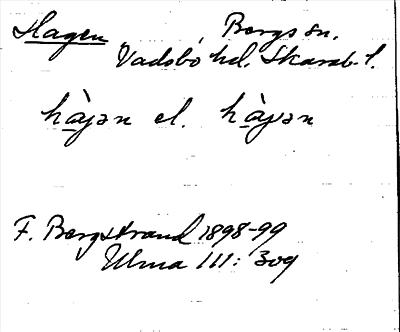 Hagen, Bergs sn.
Vadsbo hd. Skarab. l.
hàjən el. hàjən
F. Bergstrand 1898-99
Ulma 111: 309